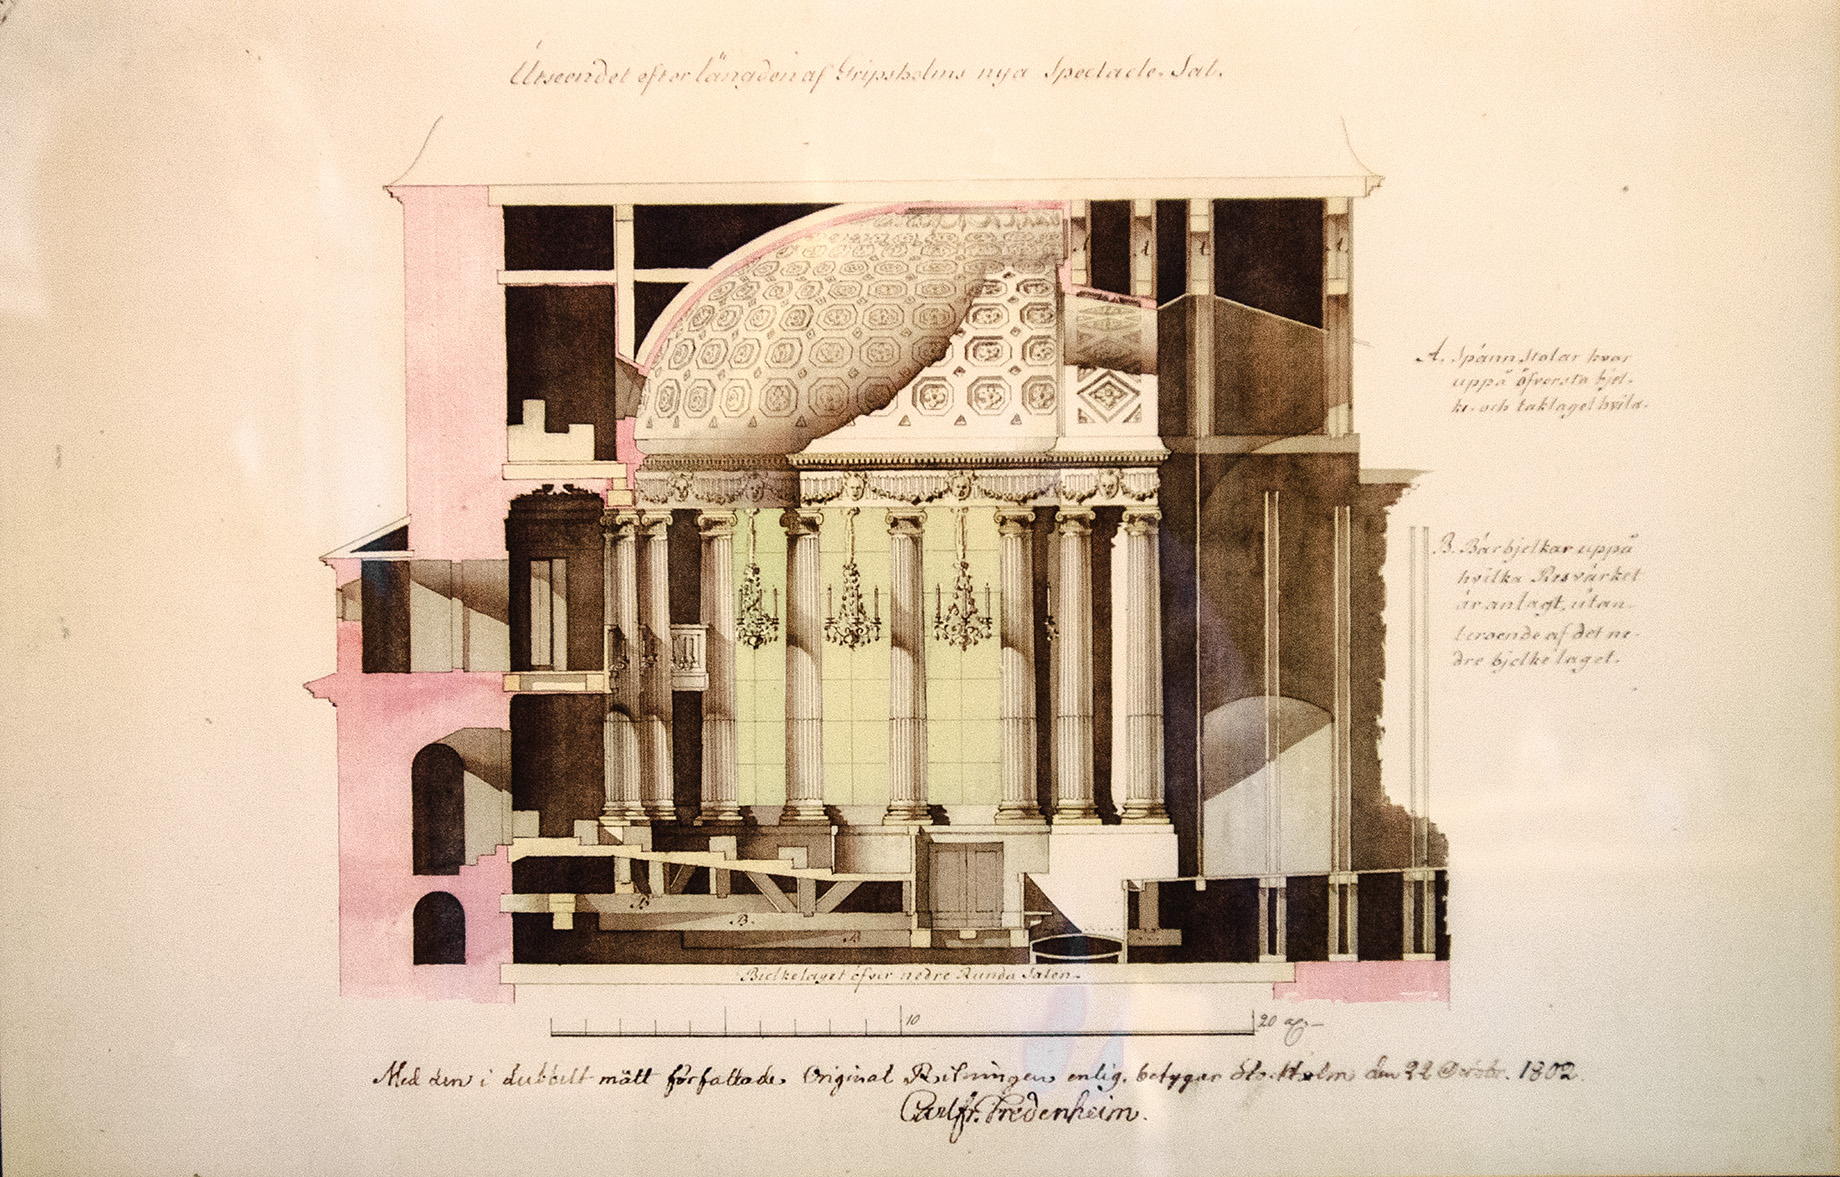 Utseendet efter längden af Gripsholms nya Spectacle-Sal.
A. Spännstolar hvar
uppå öfversta bjel-
ke- och taklaget hvila.
B. Bärbjelkar uppå
hvilka Resvärket
är anlagt, utan
beroende af det ne-
dre bjelkelaget.
A
A
A
B.
B.
B
Bielkelaget öfver nedre Runda Salen.
10
20 al:-
Med den i dubbelt mått författade Original Ritningen enlig, betygar Stockholm den 22 1802.
Carl fr. Fredenheim.